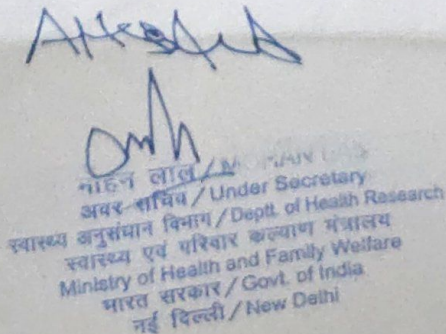 Attested
मोहन लाल / MOHAN LAL
अवर सचिव / Under Secretary
स्वास्थ्य अनुसंधान विभाग / Deptt. of Health Research
स्वास्थ्य एवं परिवार कल्याण मंत्रालय
Ministry of Health and Family Welfare
भारत सरकार / Govt. of India
नई दिल्ली / New Delhi